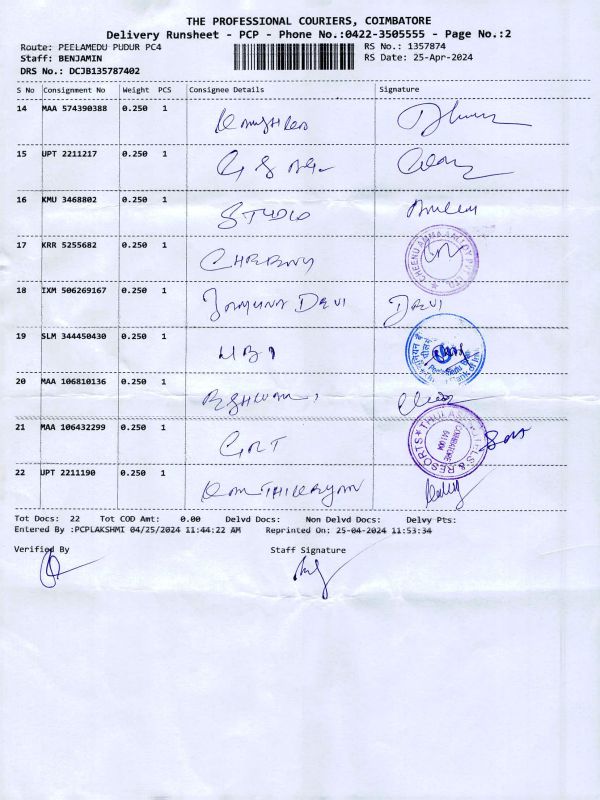 THE PROFESSIONAL COURIERS, COIMBATORE
Delivery Runsheet - PCP - Phone No.:0422-3505555 - Page No.:2
Route: PEELAMEDU PUDUR PC4 RS No.: 1357874
Staff: BENJAMIN RS Date: 25-Apr-2024
DRS No.: DCJB135787402
S No Consignment No Weight PCS Consignee Details Signature
14 MAA 574390388 0.250 1
15 UPT 2211217 0.250 1
16 KMU 3468802 0.250 1 STUDIO
17 KRR 5255682 0.250 1
18 IXM 506269167 0.250 1 JAMUNA DEVI DEVI
19 SLM 344450430 0.250 1 UBI
20 MAA 106810136 0.250 1
21 MAA 106432299 0.250 1 GRT
22 UPT 2211190 0.250 1
Tot Docs: 22 Tot COD Amt: 0.00 Delvd Docs: Non Delvd Docs: Delvy Pts:
Entered By :PCPLAKSHMI 04/25/2024 11:44:22 AM Reprinted On: 25-04-2024 11:53:34
Verified By Staff Signature